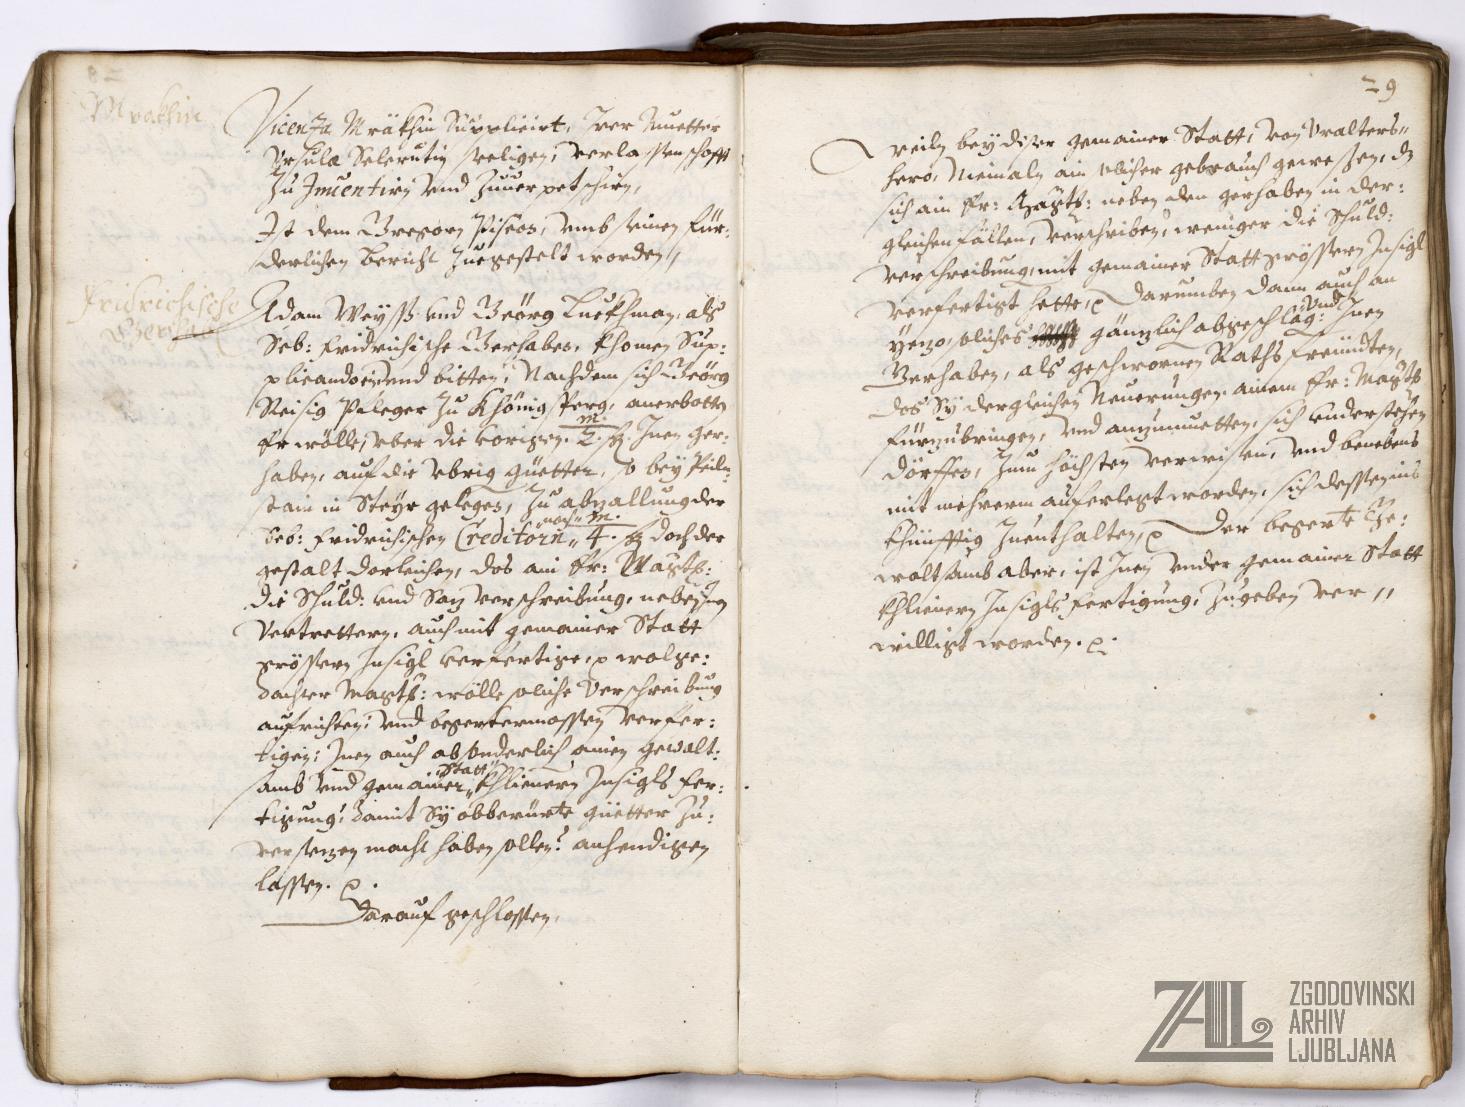 Mräkhin
Vicenza Mräkhin Supplicirt, Irer Muetter
Ursula Selerutin seeligen, verlassenschafft
Zu Inventirn vnd Zuuerpetschirn,
Ist dem Gregorn Piseos, vmb seinen für:
derlichen bericht Zuegestelt worden,,
Fridrichische
Gerhaben
Adam Weyss vnd Geörg Luckhman, als
Seb: Fridrichische Gerhaben, khomen Sup:
plicando ein vnd bitten, Nachdem sich Geörg
Reisig Pfleger Zu Khönigsperg, anerbotten
Er wölle, vber die vorigen. 2. m fl. Inen Ger:
haben, auf die vbrig güetter, so bey Peiln:
stain in Steyr gelegen, Zu abzallung der
Seb: Fridrichischen Creditorn, noch 4. m fl doch der
gestalt darleichen, das ain Er: Magist:
die Schuld: vnd Saz verschreibung, neben Inen
Vertrettern, auch mit gemainer Statt
grössern Insigl verfertige, wolge:
dachter Magist: wölle solche Verschreibung
aufrichten, vnd begertermassen verfer:
tigen; Inen auch absonderlich ainen gewalt:
samb vnd gemainer Statt khlienern Insigls fer:
tigung, damit Sy obberürte güetter Zu:
versezen macht haben sollen, anhendigen
lassen.
Darauf geschlossen,
29
Weiln bey diser gemainer Statt, von Vralters,,
hero, Niemaln ain solicher gebrauch gewessen, dz
sich ain Er: Magist: neben den gerhaben in der:
gleichen fällen, verschriben, weniger die Schuld:
verschreibung, mit gemainer Statt grössern Insigl
verfertigt hette, Darumben dann auch an
yezo, solches gänzlich abgeschlag: vnd Inen
Gerhaben, als geschwornen Raths Freündten,
das Sy dergleichen Neuerungen, ainem Er: Magist
fürzubringen, vnd anzumuetten, sich vnderstehen
dörffen, Zum höchsten verwisen, vnd benebens
mit mehrerm auferlegt worden, sich dessen ins
khünfftig Zuenthalten, Der begerte Ge:
waltsamb aber, ist Inen vnder gemainer Statt
khlienern Insigls fertigung, Zugeben ver,,
willigt worden.
ZAL
ZGODOVINSKI
ARHIV
LJUBLJANA